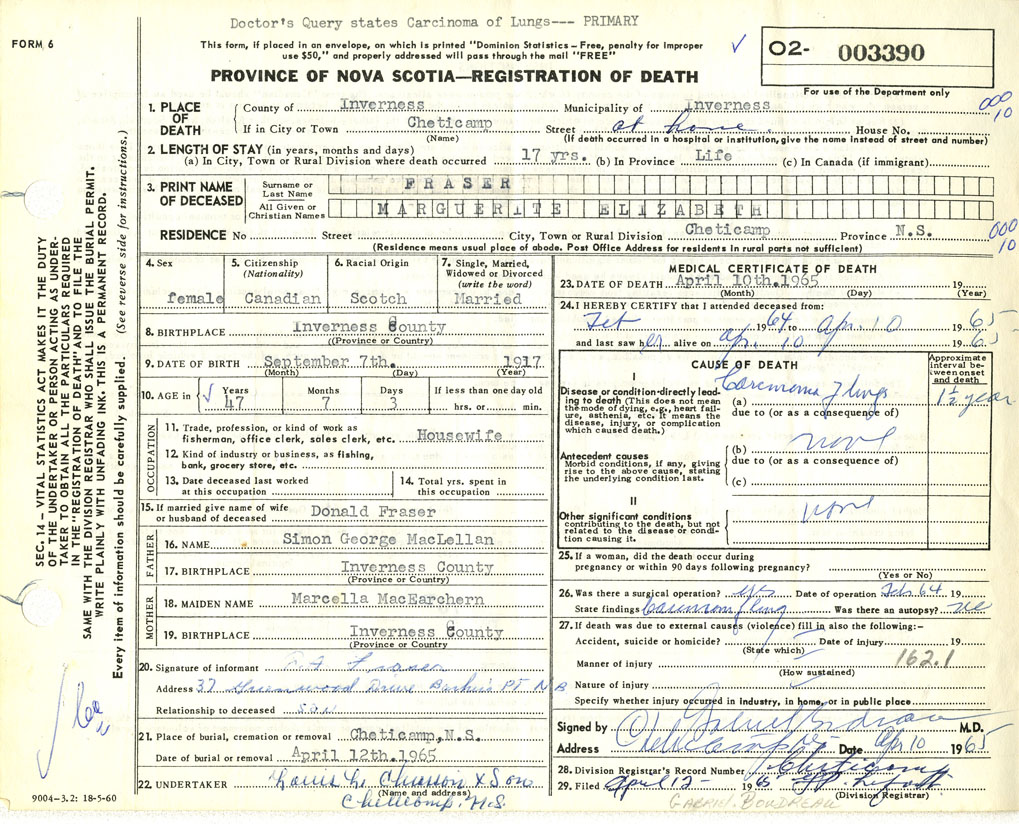 Doctor's Query states Carcinoma of Lungs--- PRIMARY
FORM 6
This form, if placed in an envelope, on which is printed "Dominion Statistics – Free, penalty for improper
use $50," and properly addressed will pass through the mail "FREE"
O2- 003390
For use of the Department only
PROVINCE OF NOVA SCOTIA—REGISTRATION OF DEATH
1. PLACE OF DEATH
County of Inverness Municipality of Inverness
000 10
If in City or Town Cheticamp Street at home. House No.
(Name) (If death occurred in a hospital or institution, give the name instead of street and number)
2. LENGTH OF STAY (in years, months and days)
(a) In City, Town or Rural Division where death occurred 17 yrs. (b) In Province Life (c) In Canada (if immigrant)
3. PRINT NAME OF DECEASED
Surname or Last Name FRASER
All Given or Christian Names MARGUERITE ELIZABETH
RESIDENCE No Street City, Town or Rural Division Cheticamp Province N.S.
000 10
(Residence means usual place of abode. Post Office Address for residents in rural parts not sufficient)
4. Sex female
5. Citizenship (Nationality) Canadian
6. Racial Origin Scotch
7. Single, Married, Widowed or Divorced (write the word) Married
8. BIRTHPLACE Inverness County
((Province or Country)
9. DATE OF BIRTH September 7th. 1917
(Month) (Day) (Year)
10. AGE in Years 47 Months 7 Days 3 If less than one day old hrs. or min.
OCCUPATION
11. Trade, profession, or kind of work as
fisherman, office clerk, sales clerk, etc. Housewife
12. Kind of industry or business, as fishing,
bank, grocery store, etc.
13. Date deceased last worked
at this occupation
14. Total yrs. spent in
this occupation
15. If married give name of wife
or husband of deceased Donald Fraser
FATHER
16. NAME Simon George MacLellan
17. BIRTHPLACE Inverness County
(Province or Country)
MOTHER
18. MAIDEN NAME Marcella MacEarchern
19. BIRTHPLACE Inverness County
(Province or Country)
20. Signature of informant Fraser
Address 37 Greenwood Drive Barkers Pt N B
Relationship to deceased son
21. Place of burial, cremation or removal Cheticamp,N.S.
Date of burial or removal April 12th.1965
22. UNDERTAKER Louis L. Chiasson & Son
(Name and address)
Cheticamp. N.S.
9004-3.2: 18-5-60
MEDICAL CERTIFICATE OF DEATH
23. DATE OF DEATH April 10th.1965 19
(Month) (Day) (Year)
24. I HEREBY CERTIFY that I attended deceased from:
Feb 1964 to Apr. 10 1965
and last saw her alive on Apr. 10 1965
CAUSE OF DEATH
Approximate interval between onset and death
I
Disease or condition directly leading
to death (This does not mean
the mode of dying, e.g., heart failure,
asthenia, etc. It means the
disease, injury, or complication
which caused death.)
(a) Carcinoma of lungs 1½ year
due to (or as a consequence of)
Antecedent causes
Morbid conditions, if any, giving
rise to the above cause, stating
the underlying condition last.
(b) none
due to (or as a consequence of)
(c)
II
Other significant conditions
contributing to the death, but not
related to the disease or condition
causing it.
none
25. If a woman, did the death occur during
pregnancy or within 90 days following pregnancy?
(Yes or No)
26. Was there a surgical operation? yes Date of operation Feb 64 19
State findings Carcinoma of lung Was there an autopsy? no
27. If death was due to external causes (violence) fill in also the following:–
Accident, suicide or homicide? Date of injury 19
(State which)
162.1
Manner of injury
(How sustained)
Nature of injury
Specify whether injury occurred in industry, in home, or in public place
Signed by Gabriel Boudreau M.D.
Address Cheticamp Date Apr 10 1965
28. Division Registrar's Record Number Cheticamp
29. Filed April 12- 1965
(Division Registrar)
GABRIEL BOUDREAU
SEC. 14 — VITAL STATISTICS ACT MAKES IT THE DUTY
OF THE UNDERTAKER OR PERSON ACTING AS UNDERTAKER
TO OBTAIN ALL THE PARTICULARS REQUIRED
IN THE "REGISTRATION OF DEATH" AND TO FILE THE
SAME WITH THE DIVISION REGISTRAR WHO SHALL ISSUE THE BURIAL PERMIT.
WRITE PLAINLY WITH UNFADING INK. THIS IS A PERMANENT RECORD.
Every item of information should be carefully supplied. (See reverse side for instructions.)